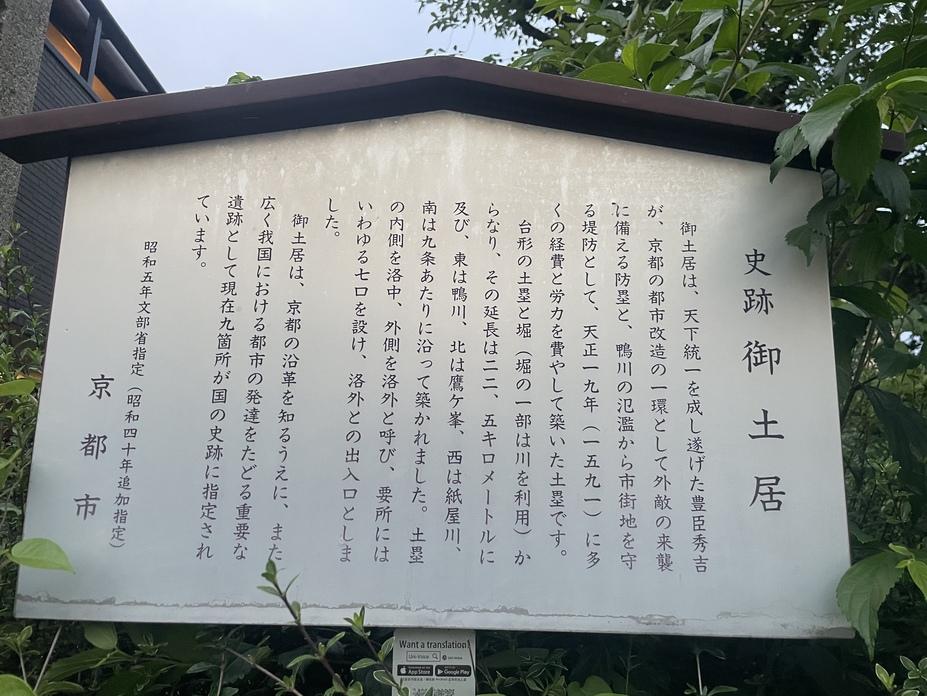 史跡 御土居
御土居は、天下統一を成し遂げた豊臣秀吉
が、京都の都市改造の一環として外敵の来襲
に備える防塁と、鴨川の氾濫から市街地を守
る堤防として、天正一九年（一五九一）に多
くの経費と労力を費やして築いた土塁です。
台形の土塁と堀（堀の一部は川を利用）か
らなり、その延長は二二、五キロメートルに
及び、東は鴨川、北は鷹ケ峯、西は紙屋川、
南は九条あたりに沿って築かれました。土塁
の内側を洛中、外側を洛外と呼び、要所には
いわゆる七口を設け、洛外との出入口としま
した。
御土居は、京都の沿革を知るうえに、また
広く我国における都市の発達をたどる重要な
遺跡として現在九箇所が国の史跡に指定され
ています。
昭和五年文部省指定（昭和四十年追加指定）
京都市
Want a translation?
Uni-Voice
App Store
Google Play